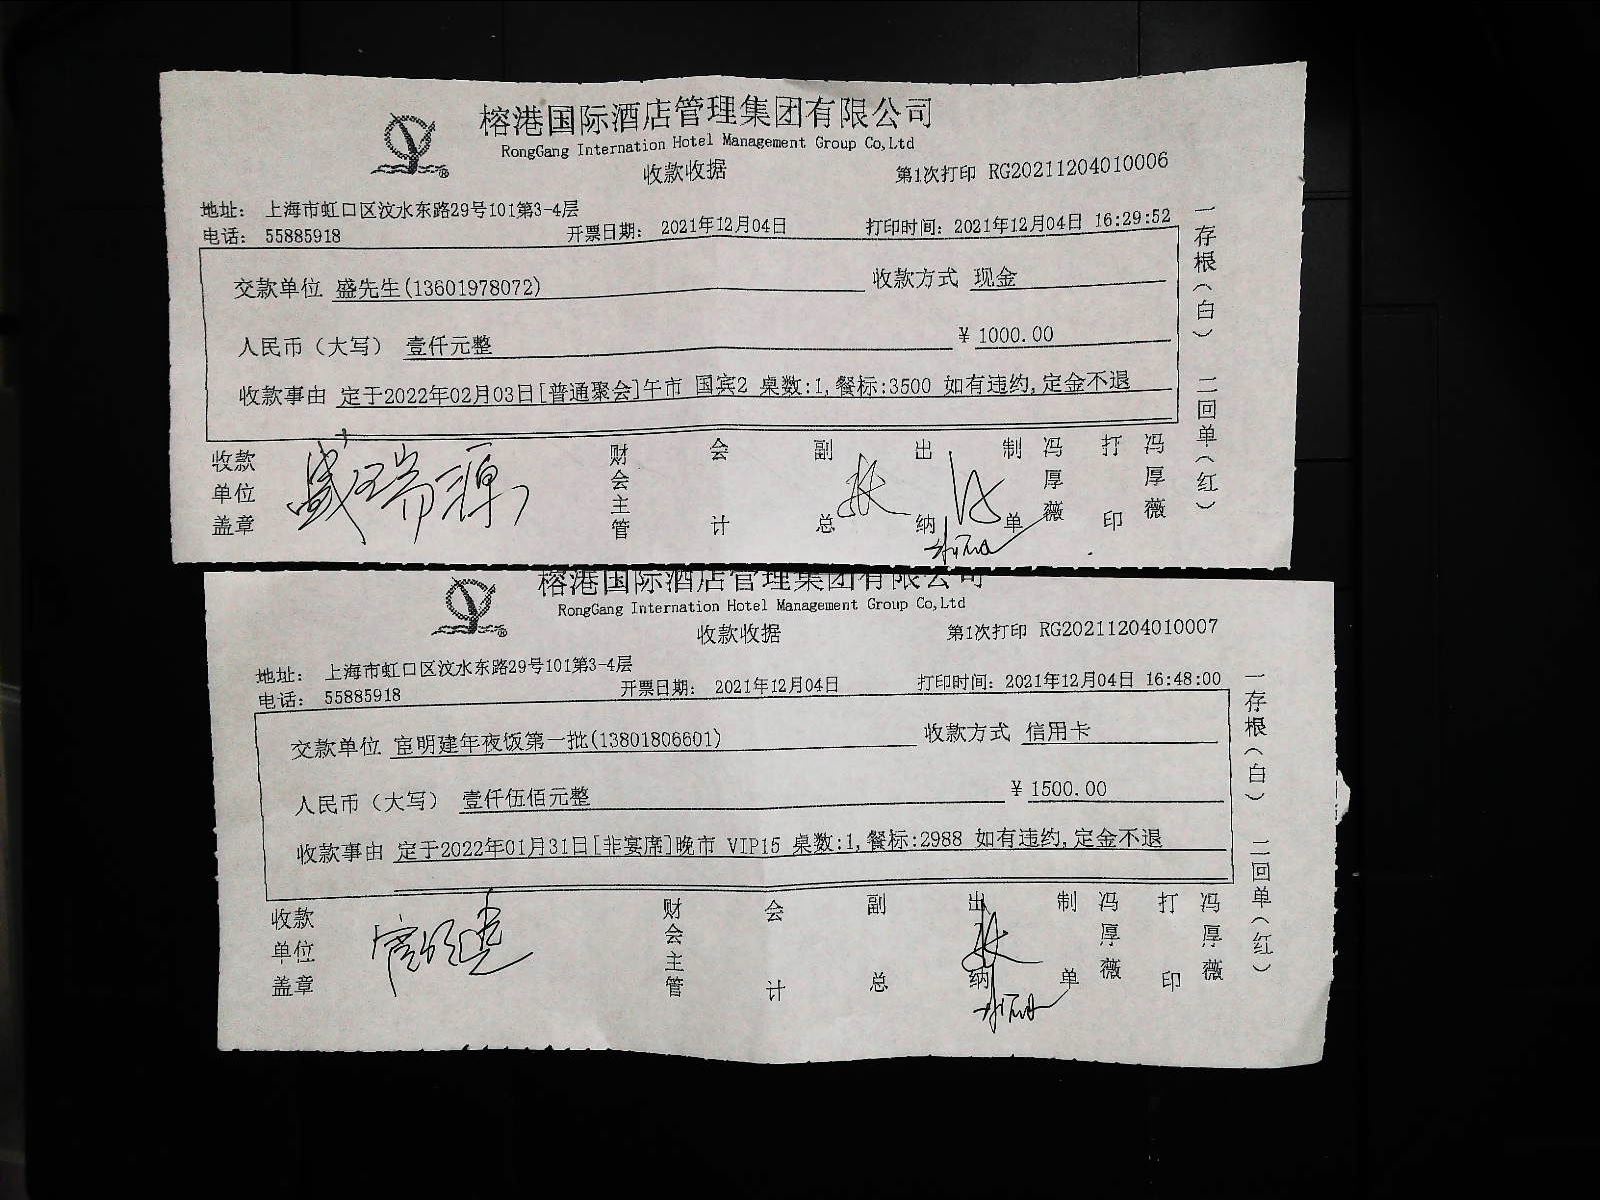 榕港国际酒店管理集团有限公司
RongGang Internation Hotel Management Group Co,Ltd
收款收据
第1次打印 RG20211204010006
地址： 上海市虹口区汶水东路29号101第3-4层
电话： 55885918 开票日期： 2021年12月04日 打印时间： 2021年12月04日 16:29:52
交款单位 盛先生(13601978072) 收款方式 现金
人民币（大写） 壹仟元整 ¥ 1000.00
收款事由 定于2022年02月03日[普通聚会]午市 国宾2 桌数:1,餐标:3500 如有违约,定金不退
收款单位盖章 盛瑞源 财会主管 会计 副总 出纳 制单 冯厚薇 打印 冯厚薇
一存根（白） 二回单（红）
榕港国际酒店管理集团有限公司
RongGang Internation Hotel Management Group Co,Ltd
收款收据
第1次打印 RG20211204010007
地址： 上海市虹口区汶水东路29号101第3-4层
电话： 55885918 开票日期： 2021年12月04日 打印时间： 2021年12月04日 16:48:00
交款单位 宦明建年夜饭第一批(13801806601) 收款方式 信用卡
人民币（大写） 壹仟伍佰元整 ¥ 1500.00
收款事由 定于2022年01月31日[非宴席]晚市 VIP15 桌数:1,餐标:2988 如有违约,定金不退
收款单位盖章 宦明建 财会主管 会计 副总 出纳 制单 冯厚薇 打印 冯厚薇
一存根（白） 二回单（红）